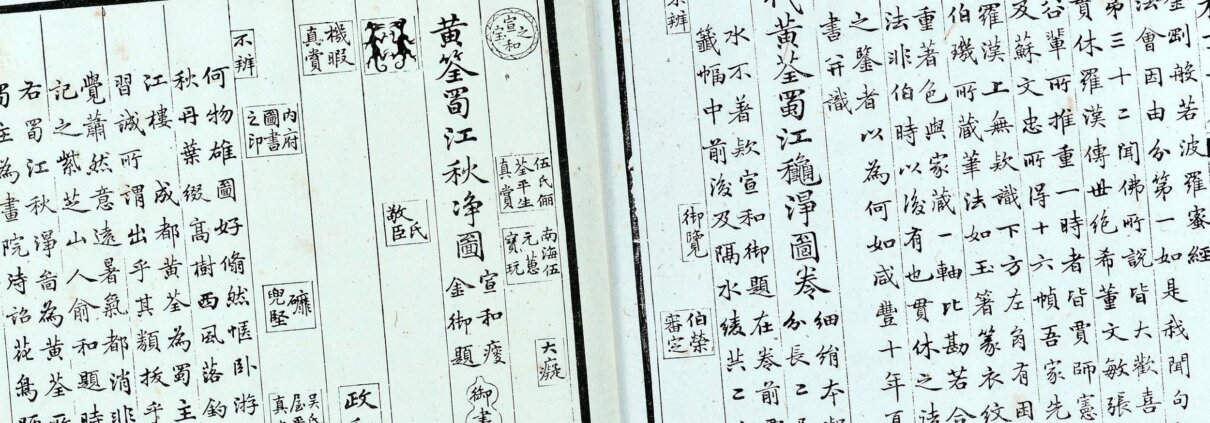 金剛般若波羅蜜經
法會因由分第一如是我聞句
第三十二聞佛所說皆大歡喜
貫休羅漢傳世絕希董文敏張
谷輩所推重一時者皆貫師憲
及蘇文忠所得十六幀吾家先
羅漢上無欵識下方左角有困
伯璣所藏筆法如玉箸篆衣紋
重著色與家藏一軸比勘若合
法非伯時以後有也貫休之法
之鑒者以為何如咸豐十年夏
書并識
代黃荃蜀江龝淨圖卷
細絹本
分長二
水不著欵宣和御題在卷前
籤幅中前後及隔水綾共二
不辨
御覽
伯榮
審定
伍氏儷
荃平生
真賞
南海伍
元蕙
寶玩
大凝
宣和之寶
黃筌蜀江秋净圖
宣和瘦
金御題
御書
敬臣氏
政
機暇
真賞
內府
圖書
之印
兜堅
吳氏
不辨
何物雄圖好翛然愜卧游
秋丹葉綴高樹西風落釣
江樓 成都黃荃為蜀主
習誠所謂出乎其類拔乎
覺蕭然意遠暑氣都消非
記之紫芝山人俞和題時
右蜀江秋淨啚為黃荃所
蜀主為畫院待詔花鳥師